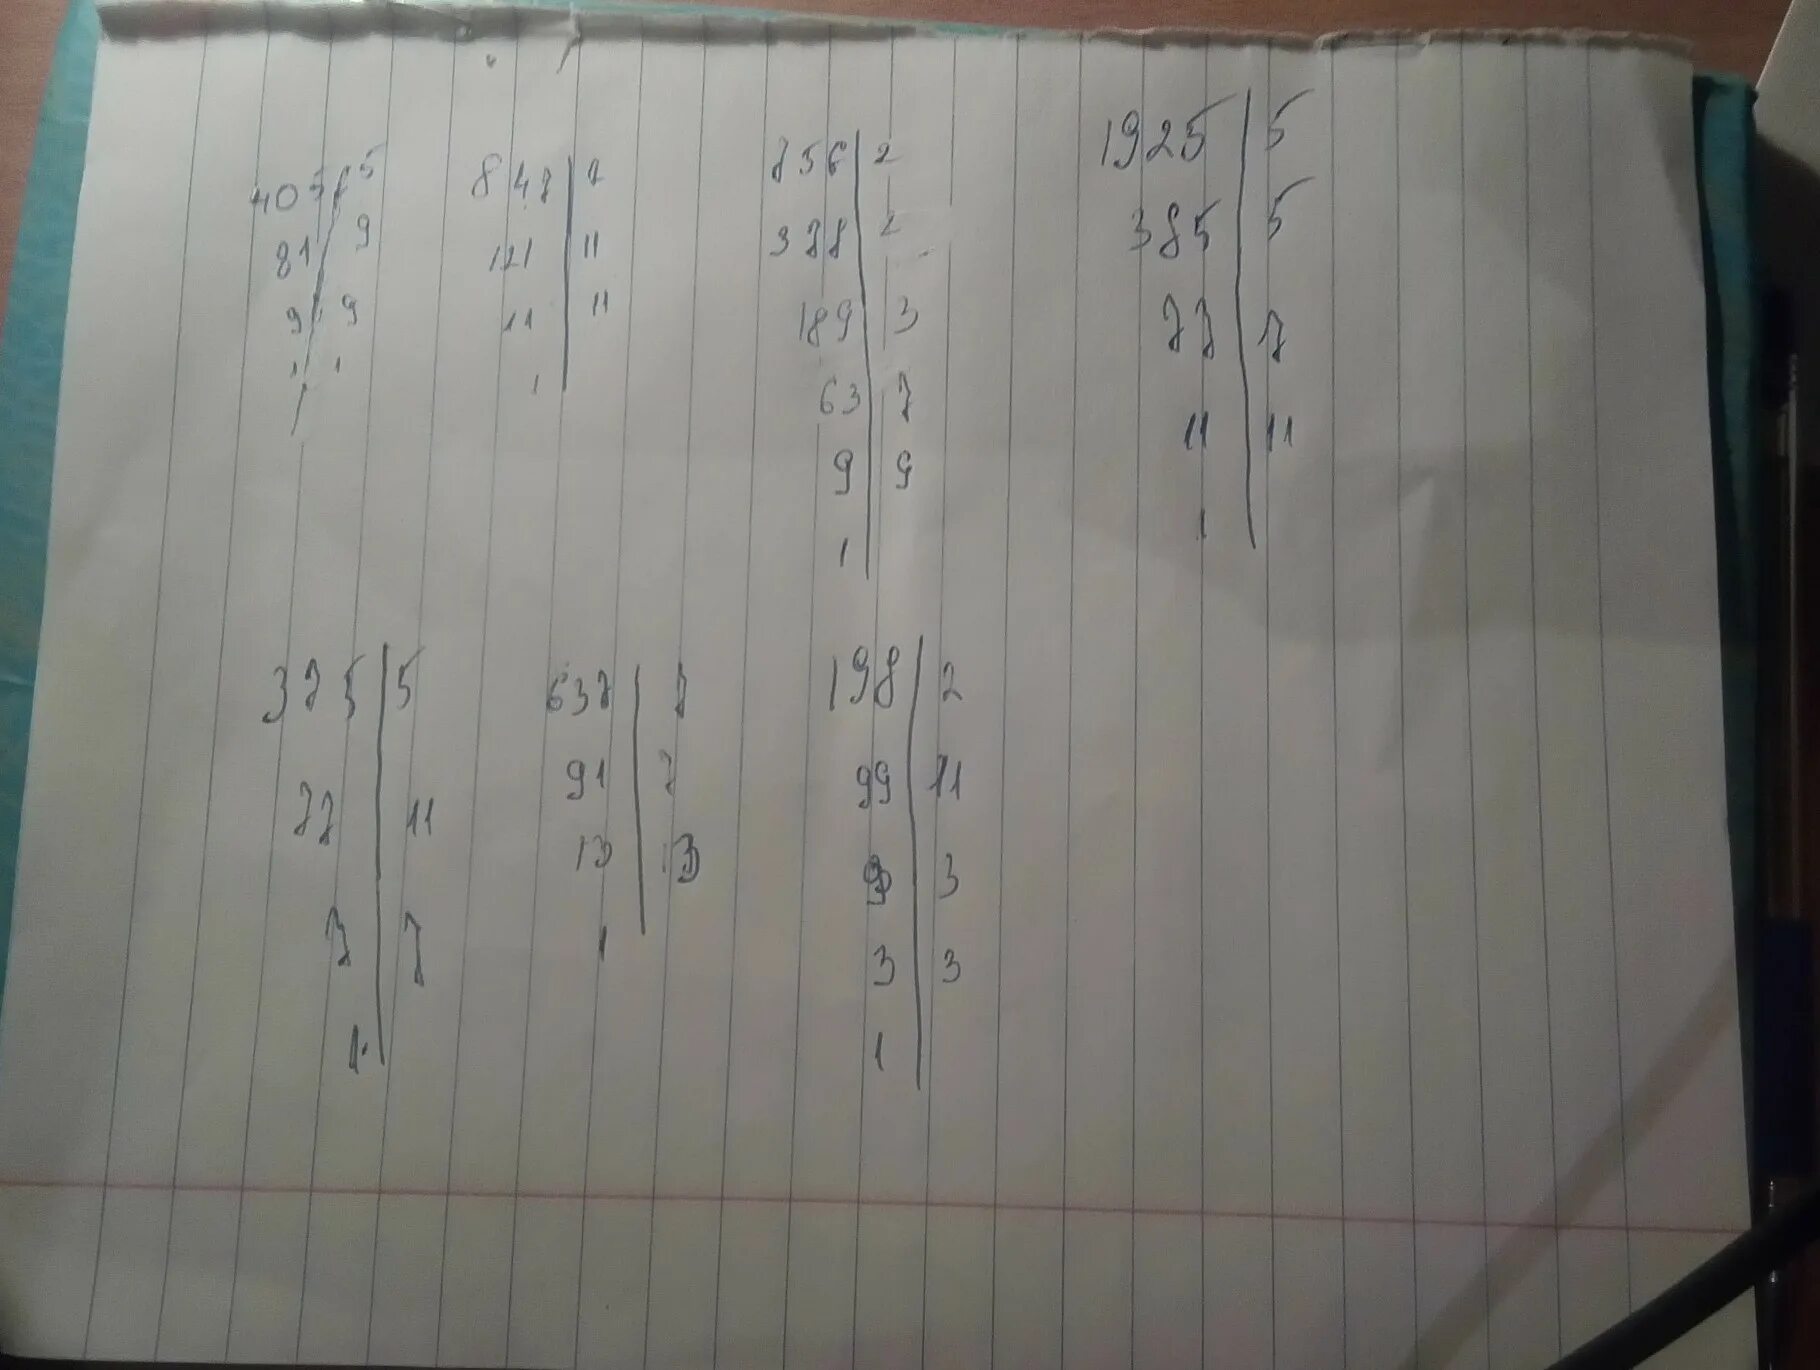 405 | 5
81 | 9
9 | 9
1 | 1
847 | 7
121 | 11
11 | 11
1 |
756 | 2
378 | 2
189 | 3
63 | 7
9 | 9
1 |
1925 | 5
385 | 5
77 | 7
11 | 11
1 |
375 | 5
77 | 11
7 | 7
1 |
637 | 7
91 | 7
13 | 13
1 |
198 | 2
99 | 11
9 | 3
3 | 3
1 |